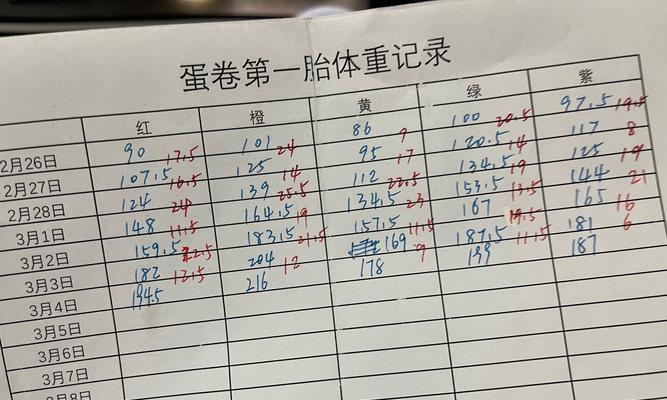 蛋卷第一胎体重记录
红 橙 黄 绿 紫
2月26日 90 17.5 101 24 86 9 100 20.5 97.5 19.5
2月27日 107.5 16.5 125 14 95 17 120.5 14 117 8
2月28日 124 24 139 25.5 112 22.5 134.5 19 125 19
3月1日 148 11.5 164.5 19 134.5 23 153.5 13.5 144 21
3月2日 159.5 22.5 183.5 21.5 157.5 11.5 167 19.5 165 16
3月3日 182 12.5 204 12 169 9 187.5 11.5 181 6
3月4日 194.5 216 178 199 187
3月5日
3月6日
3月7日
3月8日